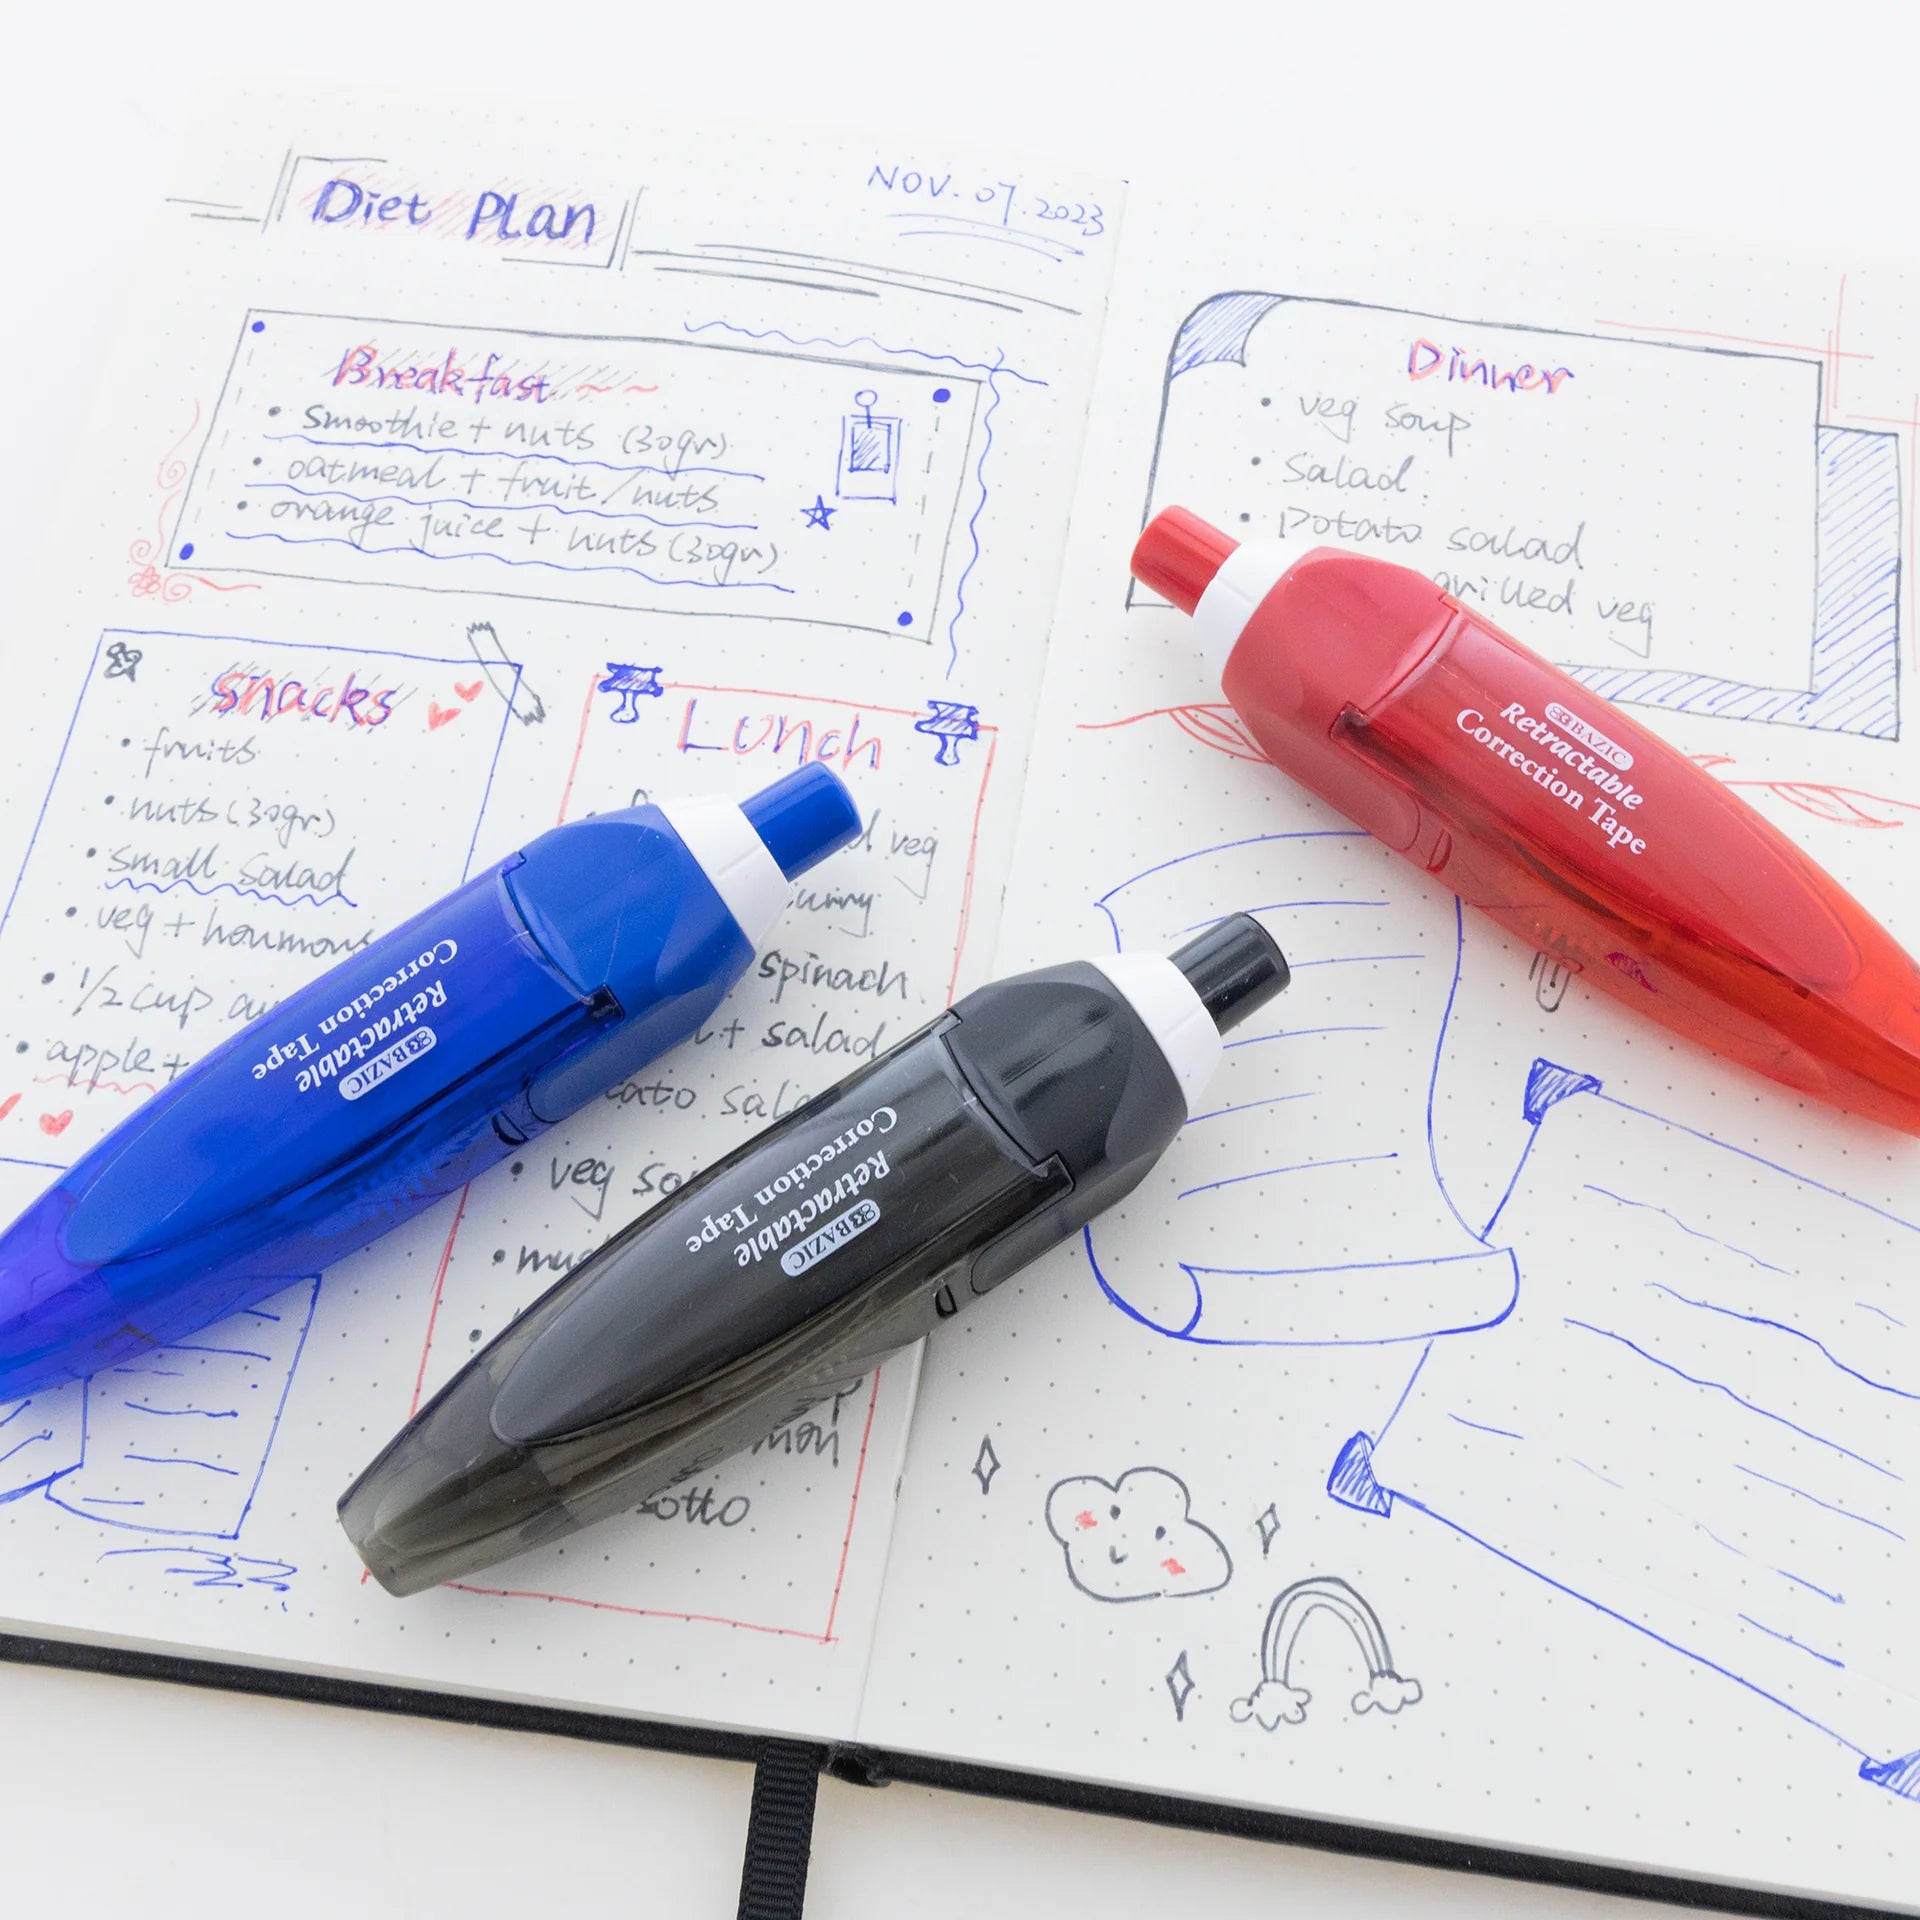 Diet PLan
NOV. 07. 2023
Breakfast ~~
• smoothie + nuts (30gr)
• oatmeal + fruit/nuts
• orange juice + nuts (30gr)
snacks
• fruits
• nuts (30gr)
• small salad
• veg + houmous
• 1/2 cup
• apple +
Lunch
veg
curry
spinach
+ salad
veg
•
Dinner
• veg soup
• salad.
• potato salad
grilled veg
BAZIC
Retractable
Correction Tape
BAZIC
Retractable
Correction Tape
BAZIC
Retractable
Correction Tape